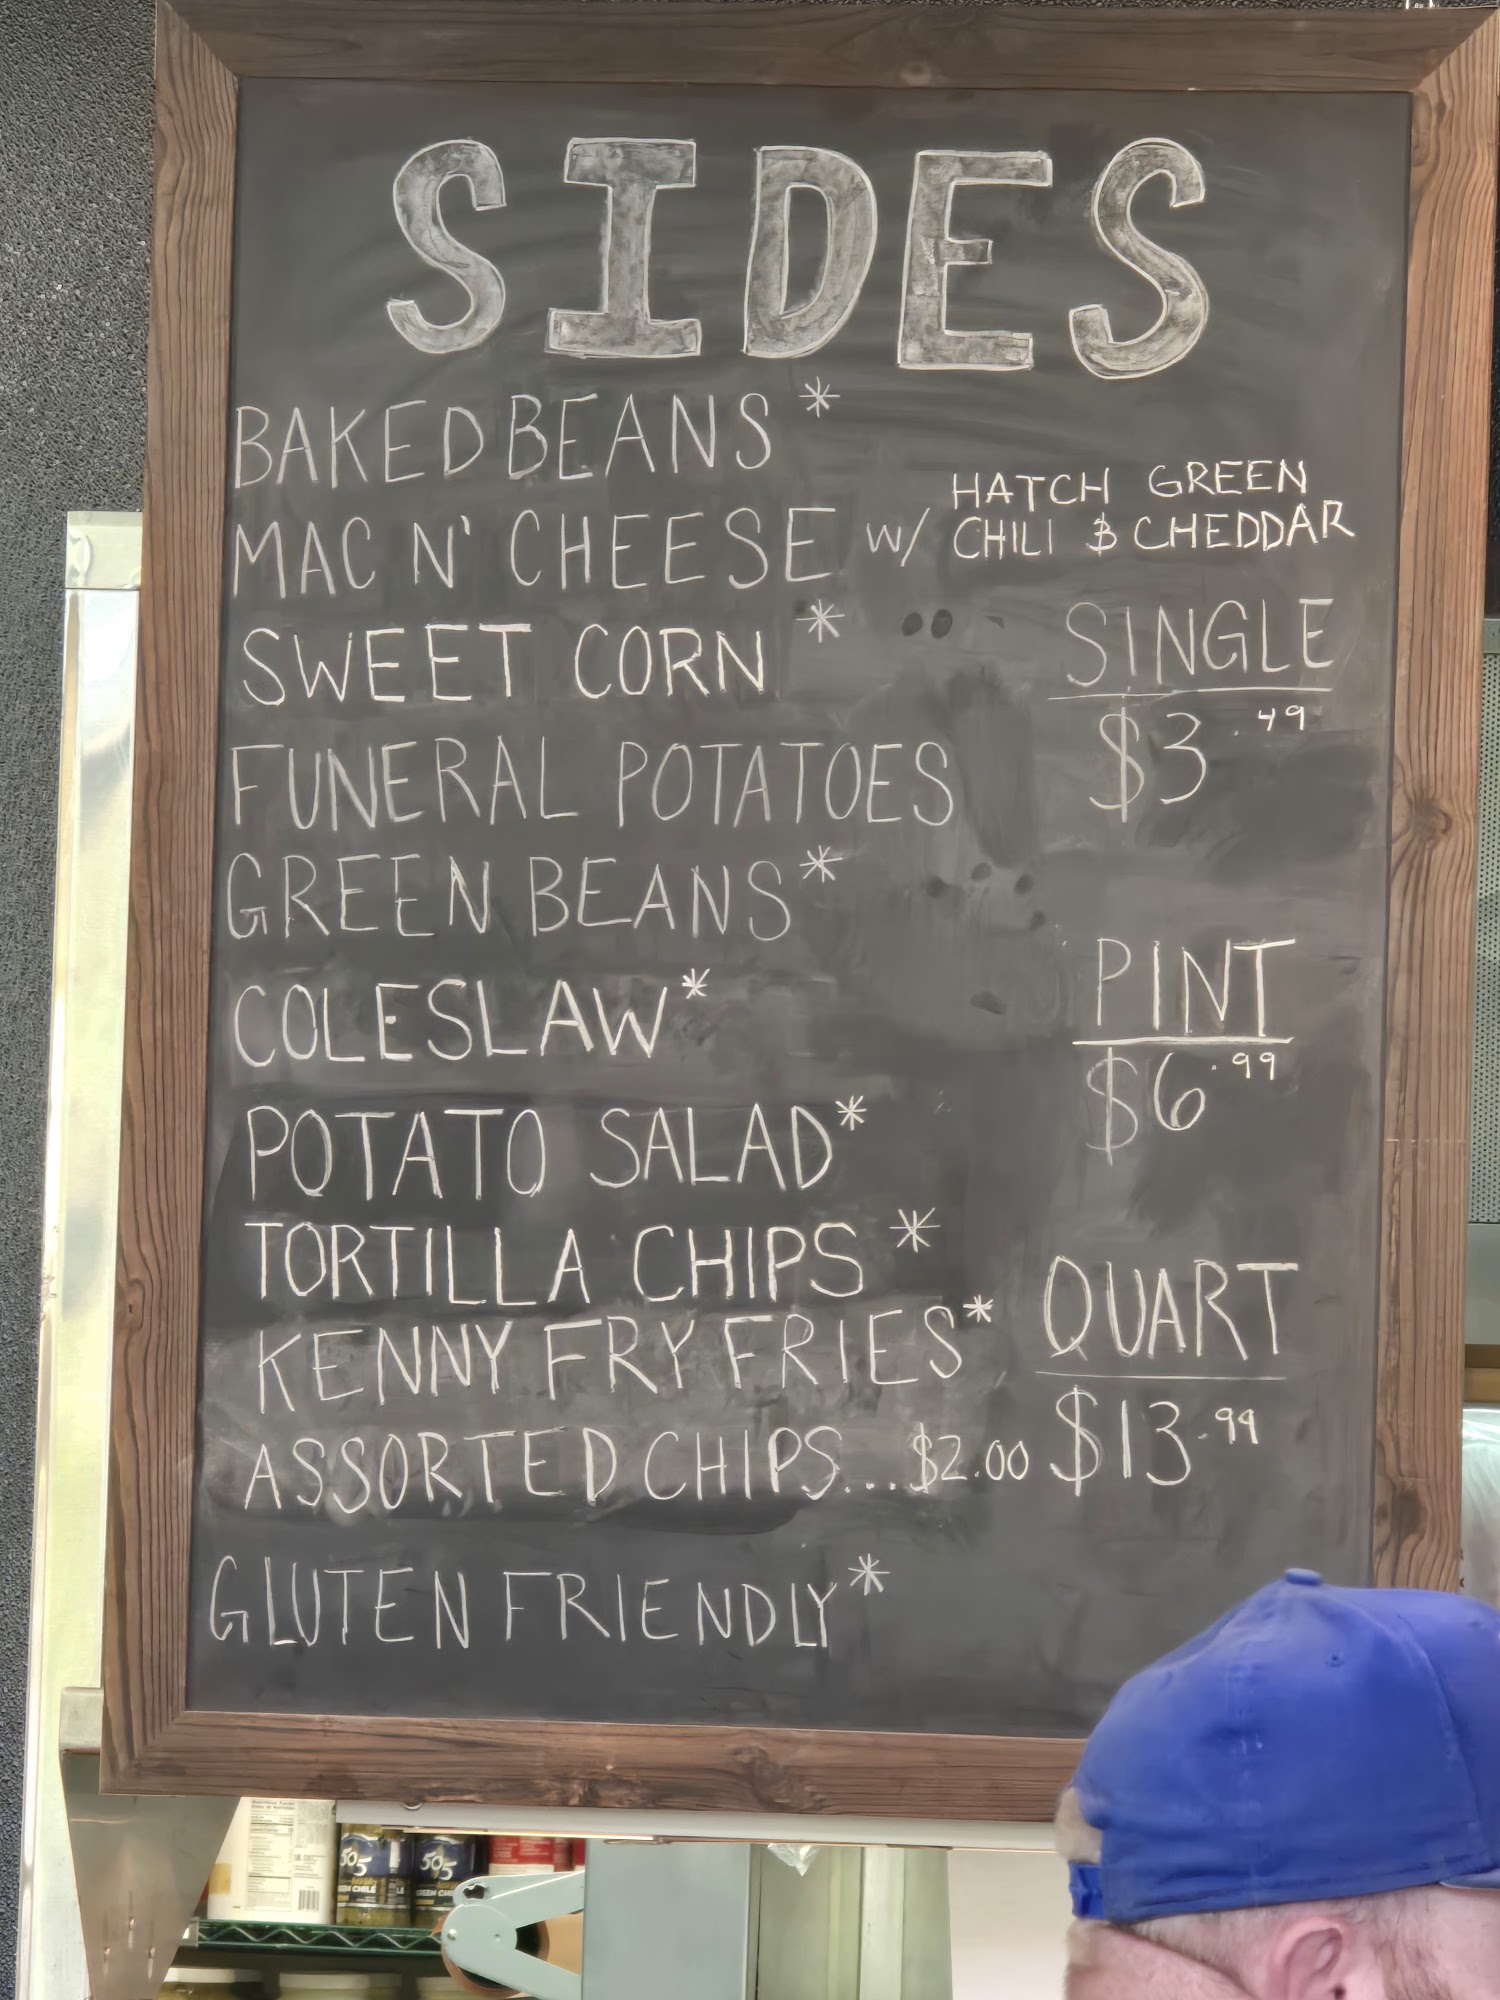 SIDES
BAKED BEANS*
MAC N' CHEESE w/ HATCH GREEN CHILI & CHEDDAR
SWEET CORN*
FUNERAL POTATOES
GREEN BEANS*
COLESLAW*
POTATO SALAD*
TORTILLA CHIPS*
KENNY FRY FRIES*
ASSORTED CHIPS...$2.00
SINGLE
$3.49
PINT
$6.99
QUART
$13.99
GLUTEN FRIENDLY*
505
505